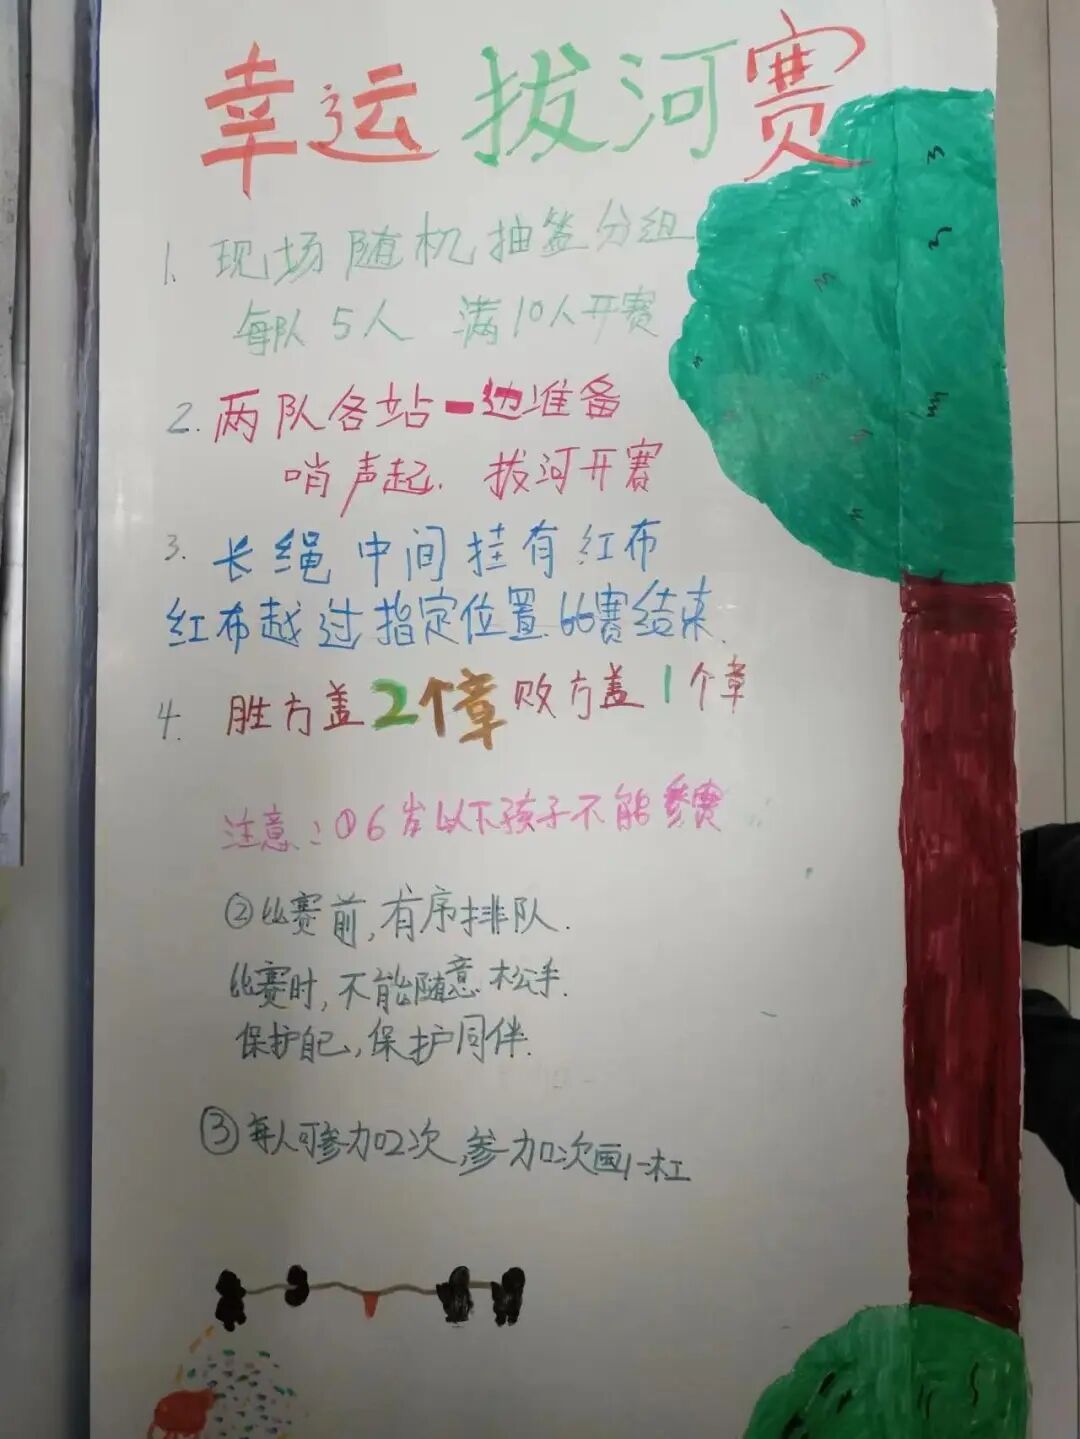 幸运拔河赛
1. 现场随机抽签分组
每队5人 满10人开赛
2. 两队各站一边准备
哨声起. 拔河开赛
3. 长绳中间挂有红布
红布越过指定位置.比赛结束.
4. 胜方盖2个章败方盖1个章
注意:①6岁以下孩子不能参赛
②比赛前,有序排队.
比赛时,不能随意松手.
保护自己,保护同伴.
③每人可参加2次,参加1次画1杠